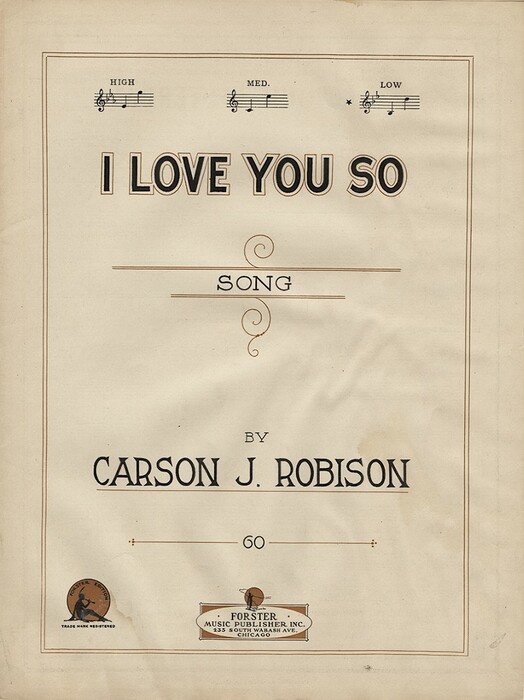 HIGH MED. LOW
I LOVE YOU SO
SONG
BY
CARSON J. ROBISON
60
FORSTER EDITION
TRADE MARK REGISTERED
FORSTER
MUSIC PUBLISHER INC.
235 SOUTH WABASH AVE.
CHICAGO